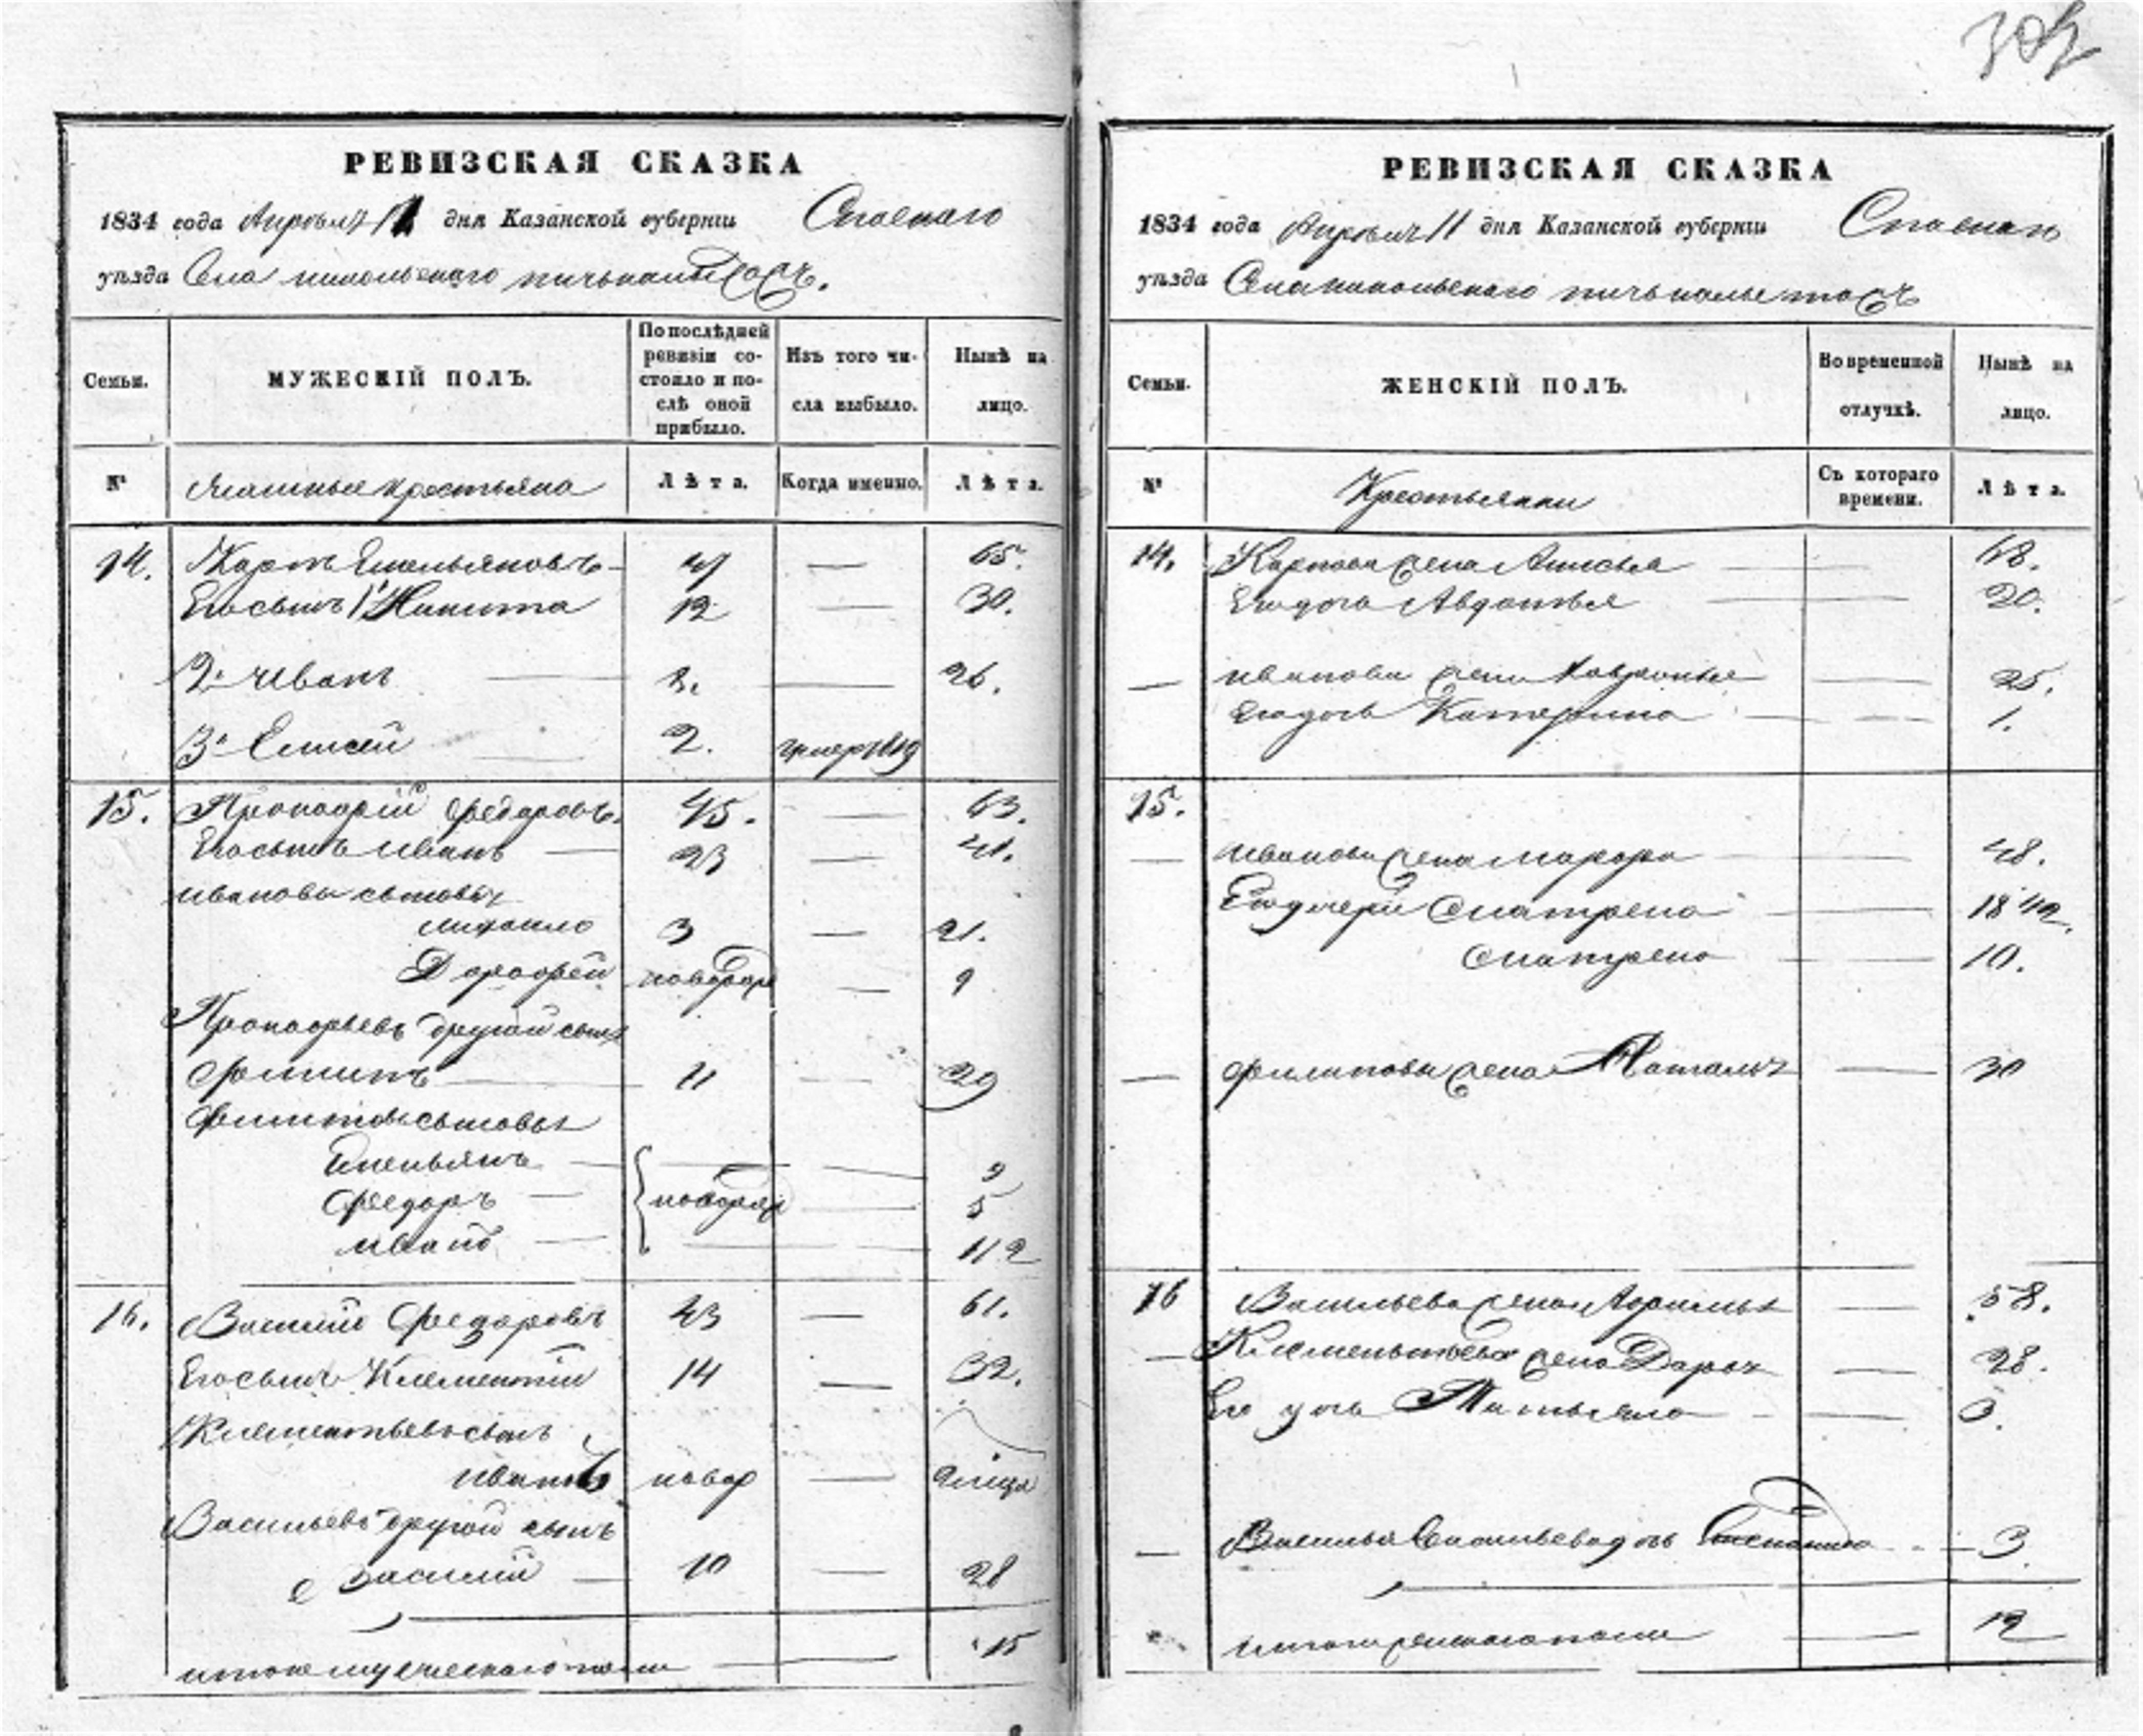 РЕВИЗСКАЯ СКАЗКА
1834 года Апреля 11 дня Казанской губернiи Спаскаго
уѣзда Села никольскаго
Семьи.
МУЖЕСКIЙ ПОЛЪ.
По послѣдней ревизiи со-стояло и по-слѣ оной прибыло.
Изъ того чи-сла выбыло.
Нынѣ на лицо.
№
Ясашныя крестьяна
Лѣта.
Когда именно.
Лѣта.
14. Карпъ Емельяновъ 47 — 65.
Егосынъ 1й Никита 12 — 30.
2й Иванъ — 8. — 26.
3й Елисей 2. умеръ 1819
15. Прокофiй Федаровъ. 45. — 63.
Егосынъ Иванъ — 23 — 41.
Ивановы сыновья
Михаило 3 — 21.
Дорофей — 9
Прокофьевъ другой сынъ
Филипъ — 11 — 29
Филиповы сыновья
Емельянъ — 9
Федоръ — 5
Иванъ — 1/2
16. Василiй Федоровъ 43 — 61.
Егосынъ Клементiй 14 — 32.
Клементьевъ сынъ
Иванъ новор —
Васильевъ другой сынъ
Василiй — 10 — 28
итого мужескаго пола — 15
РЕВИЗСКАЯ СКАЗКА
1834 года Апреля 11 дня Казанской губернiи Спаскаго
уѣзда Села никольскаго
Семьи.
ЖЕНСКIЙ ПОЛЪ.
Во временной отлучкѣ.
Нынѣ на лицо.
№
Крестьянки
Съ котораго времени.
Лѣта.
14. Карпова жена Анисья — 68.
Егодочь Авдотья — 20.
— Иванова жена — 25.
Егодочь Катерина — 1.
15.
— Иванова жена Марфа — 48.
Егодочери Матрена — 18 1/2.
Матрена — 10.
— Филипова жена Наталья — 30
16 Васильева жена — 58.
— Клементьева жена Дарья — 28.
Его дочь Татьяна — 3.
— Василья Васильева дочь Степанида — 3.
итого женскаго пола — 12